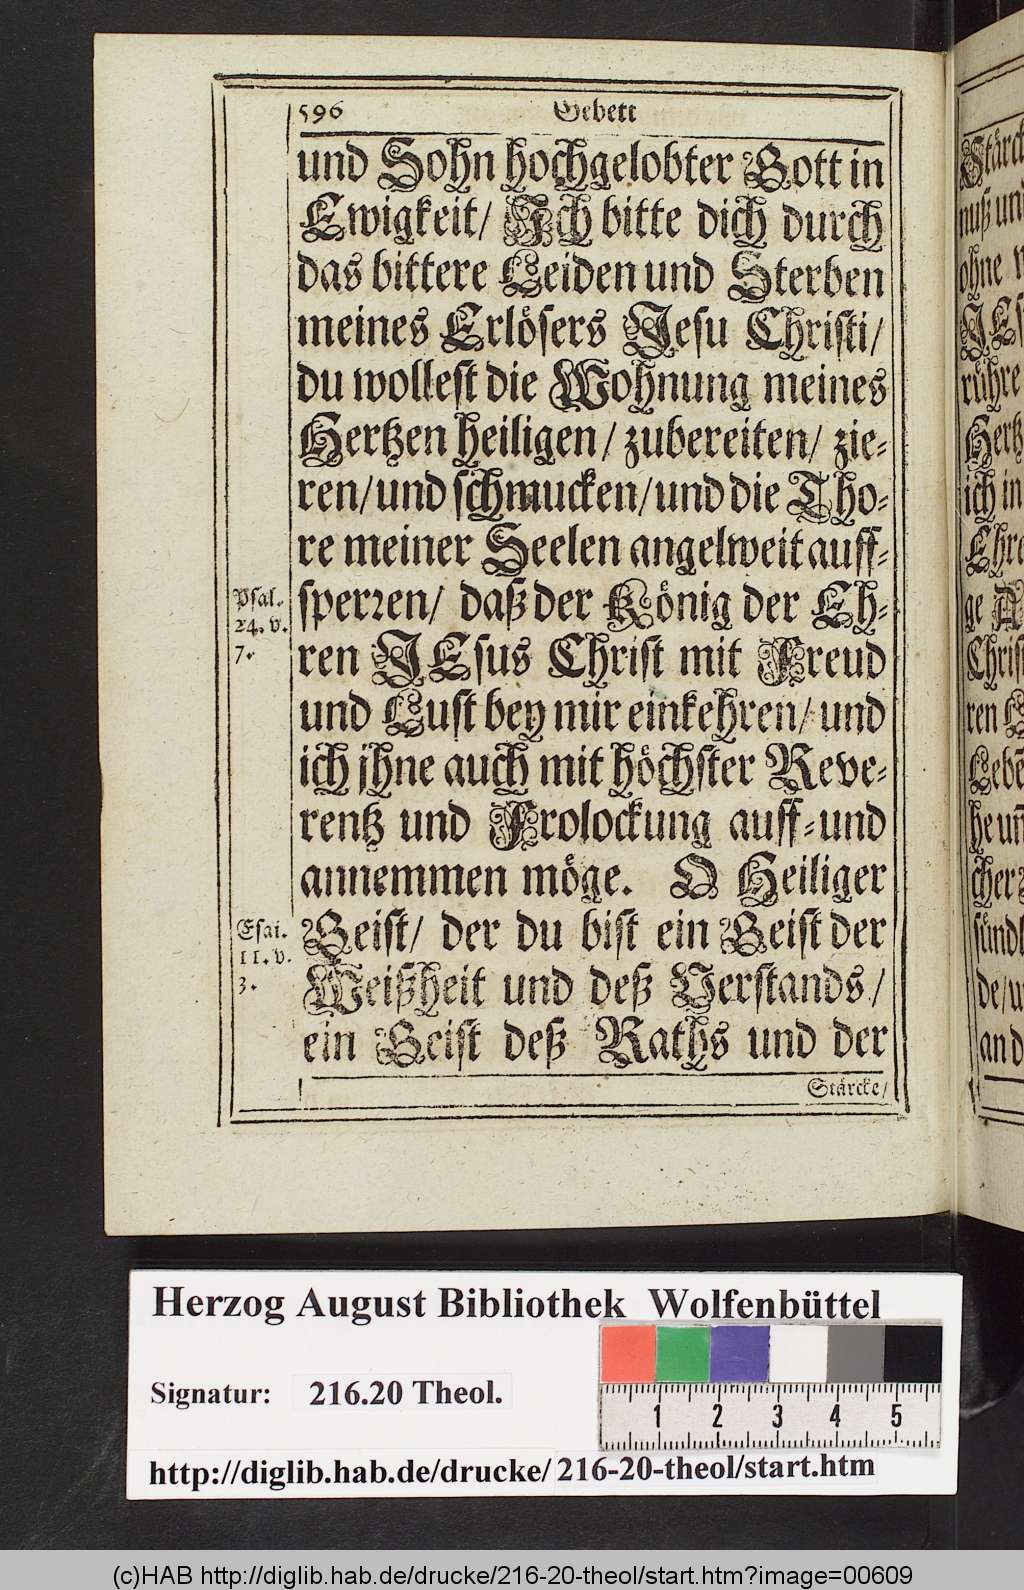 596 Gebett
und Sohn hochgelobter Gott in
Ewigkeit/ Ich bitte dich durch
das bittere Leiden und Sterben
meines Erlösers Jesu Christi/
du wollest die Wohnung meines
Hertzen heiligen/ zubereiten/ zie-
ren/und schmucken/und die Tho-
re meiner Seelen angelweit auff-
sperren/ daß der König der Eh-
ren JEsus Christ mit Freud
und Lust bey mir einkehren/ und
ich jhne auch mit höchster Reve-
rentz und Frolockung auff-und
annemmen möge. O Heiliger
Geist/ der du bist ein Geist der
Weißheit und deß Verstands/
ein Geist deß Raths und der
Stärcke/
Psal.
24. v.
7.
Esai.
11. v.
3.
Stärck
nuß un
ohne
JEs
rühre
Hertz
ich in
Ehre
ge A
Christ
ren
Lebe
he uñ
cher
sündl
de/
an d
Herzog August Bibliothek Wolfenbüttel
Signatur: 216.20 Theol.
1 2 3 4 5
http://diglib.hab.de/drucke/216-20-theol/start.htm
(c)HAB http://diglib.hab.de/drucke/216-20-theol/start.htm?image=00609